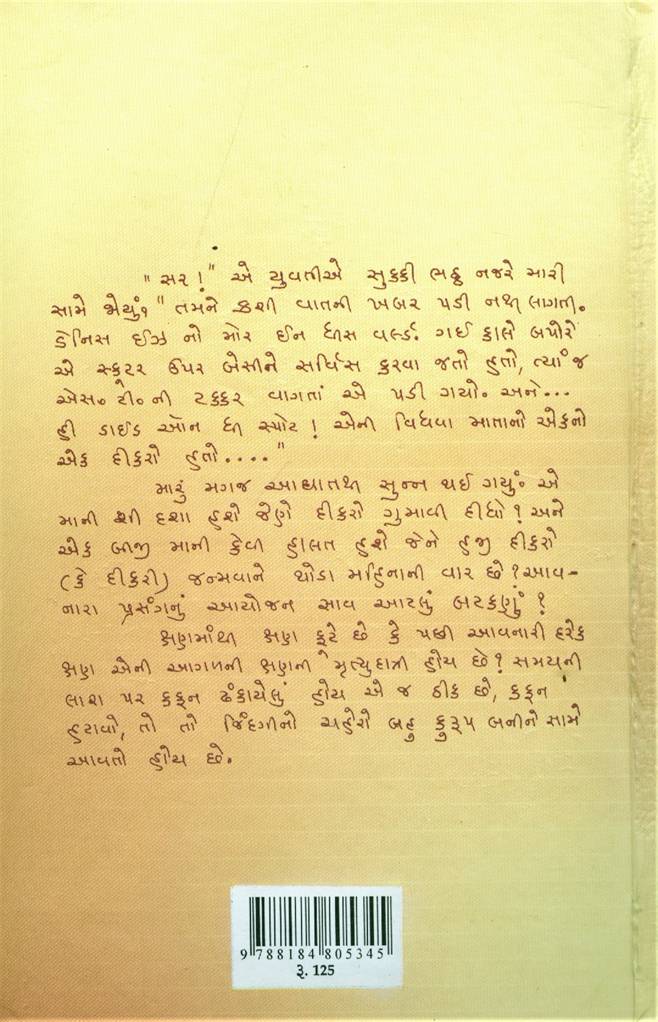 " સર ! " એ યુવતીએ સુક્કી ભઠ્ઠ નજરે મારી
સામે જોયું. " તમને કશી વાતની ખબર પડી નથી લાગતી.
ડેનિસ ઈઝ નો મોર ઈન ધીસ વર્લ્ડ. ગઈ કાલે બપોરે
એ સ્કૂટર ઉપર બેસીને સર્વિસ કરવા જતો હતો, ત્યાં જ
એસ. ટી. ની ટક્કર વાગતાં એ પડી ગયો. અને...
હી ડાઈડ ઓન ધી સ્પોટ ! એની વિધવા માતાનો એકનો
એક દીકરો હતો.... "
મારું મગજ આઘાતથી સુન્ન થઈ ગયું. એ
માની શી દશા હશે જેણે દીકરો ગુમાવી દીધો ? અને
એક બીજી માની કેવી હાલત હશે જેને હજી દીકરો
(કે દીકરી) જન્મવાને થોડા મહિનાની વાર છે ? આવ-
નારા પ્રસંગનું આયોજન સાવ આટલું બટકણું ?
ક્ષણમાંથી ક્ષણ ફૂટે છે કે પછી આવનારી દરેક
ક્ષણ એની આગળની ક્ષણની મૃત્યુદાત્રી હોય છે ? સમયની
લાશ પર કફન ઢંકાયેલું હોય એ જ ઠીક છે, કફન
હટાવો, તો તો જિંદગીનો ચહેરો બહુ કુરૂપ બનીને સામે
આવતો હોય છે.
9 788184 805345
રૂ. 125